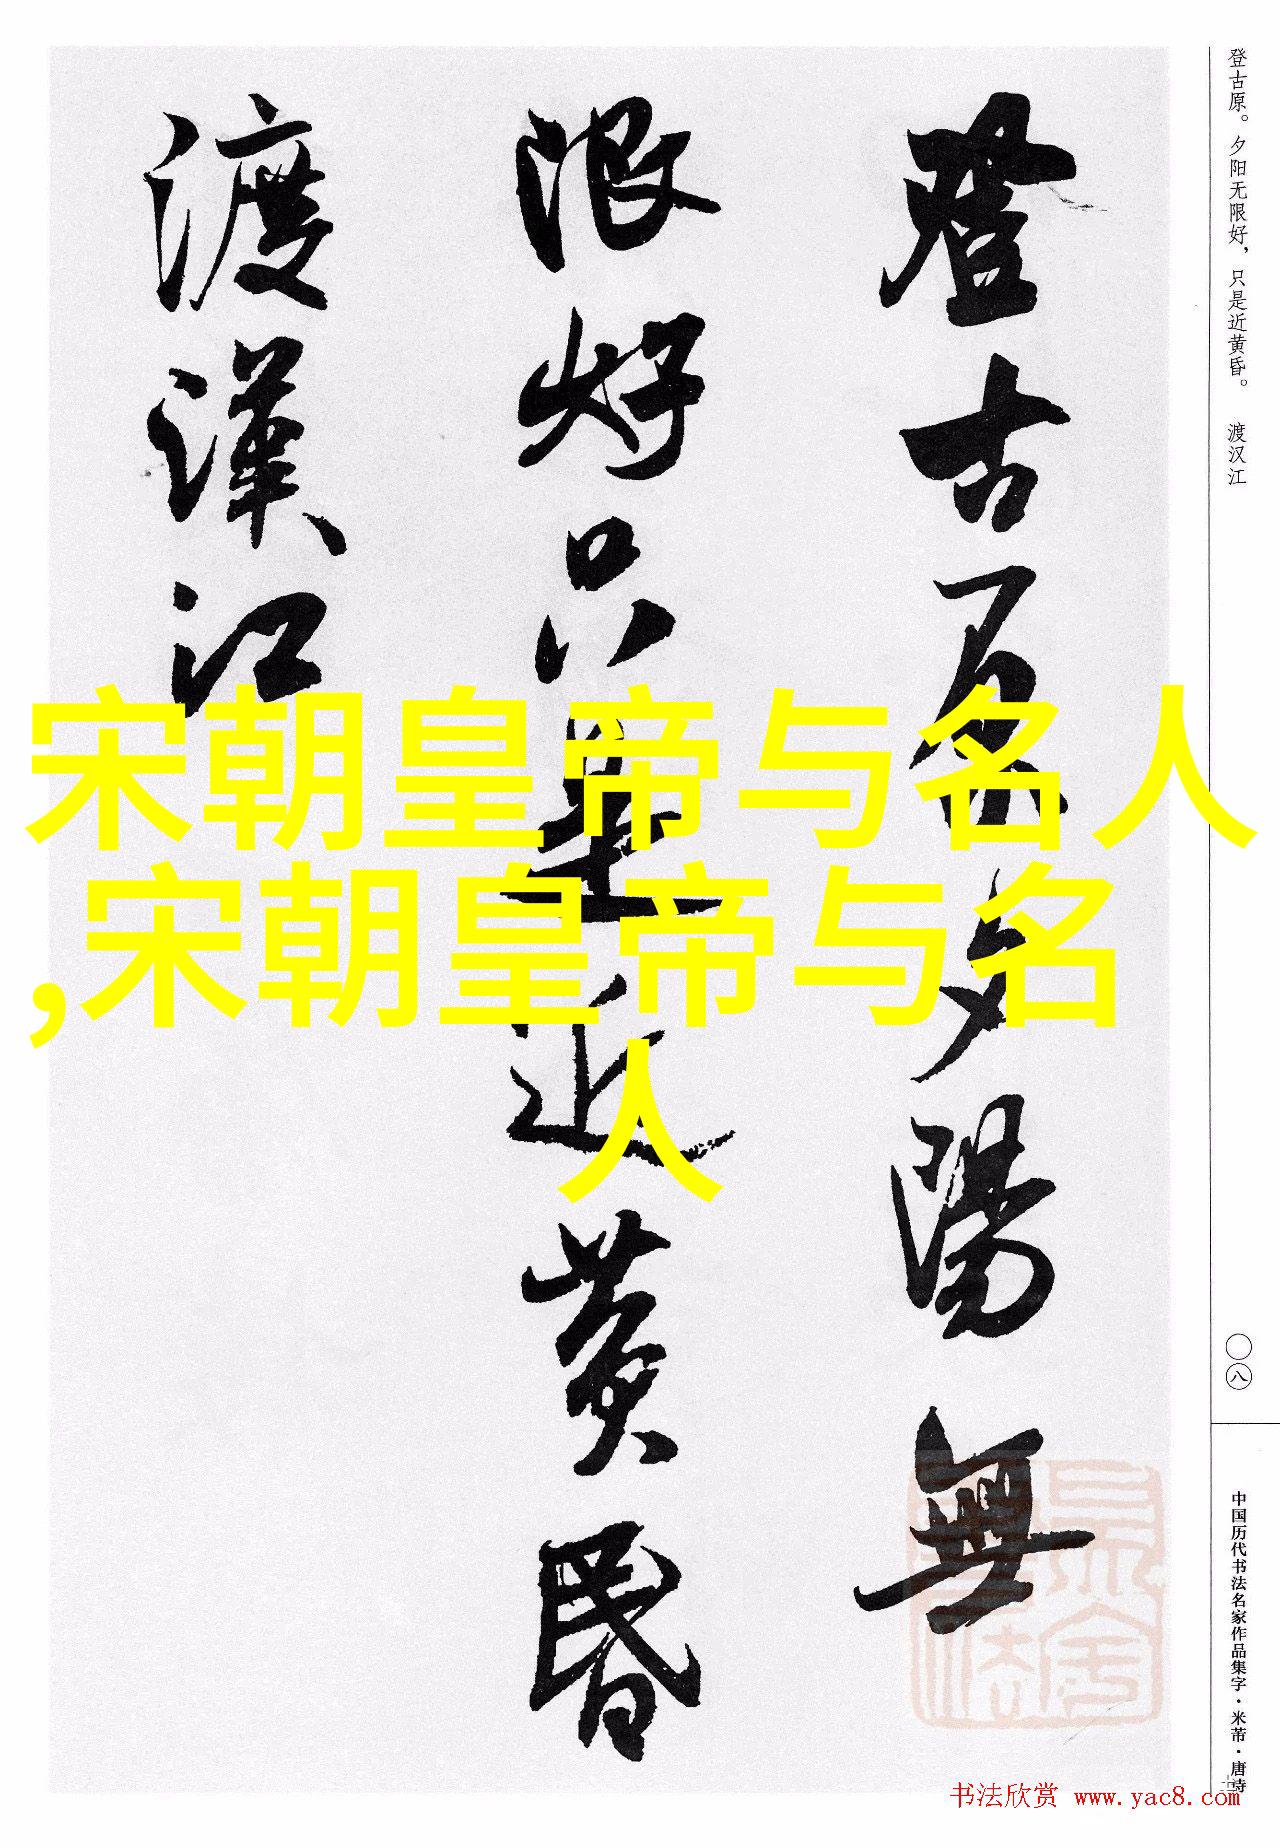 登古原夕陽無
限好只是近黄昏
渡漢江
登古原。夕阳无限好，只是近黄昏。 渡汉江
宋朝皇帝与名人
,宋朝皇帝与名
人
〇八
中国历代书法名家作品集字·米芾·唐诗
书法欣赏 www.yac8.com